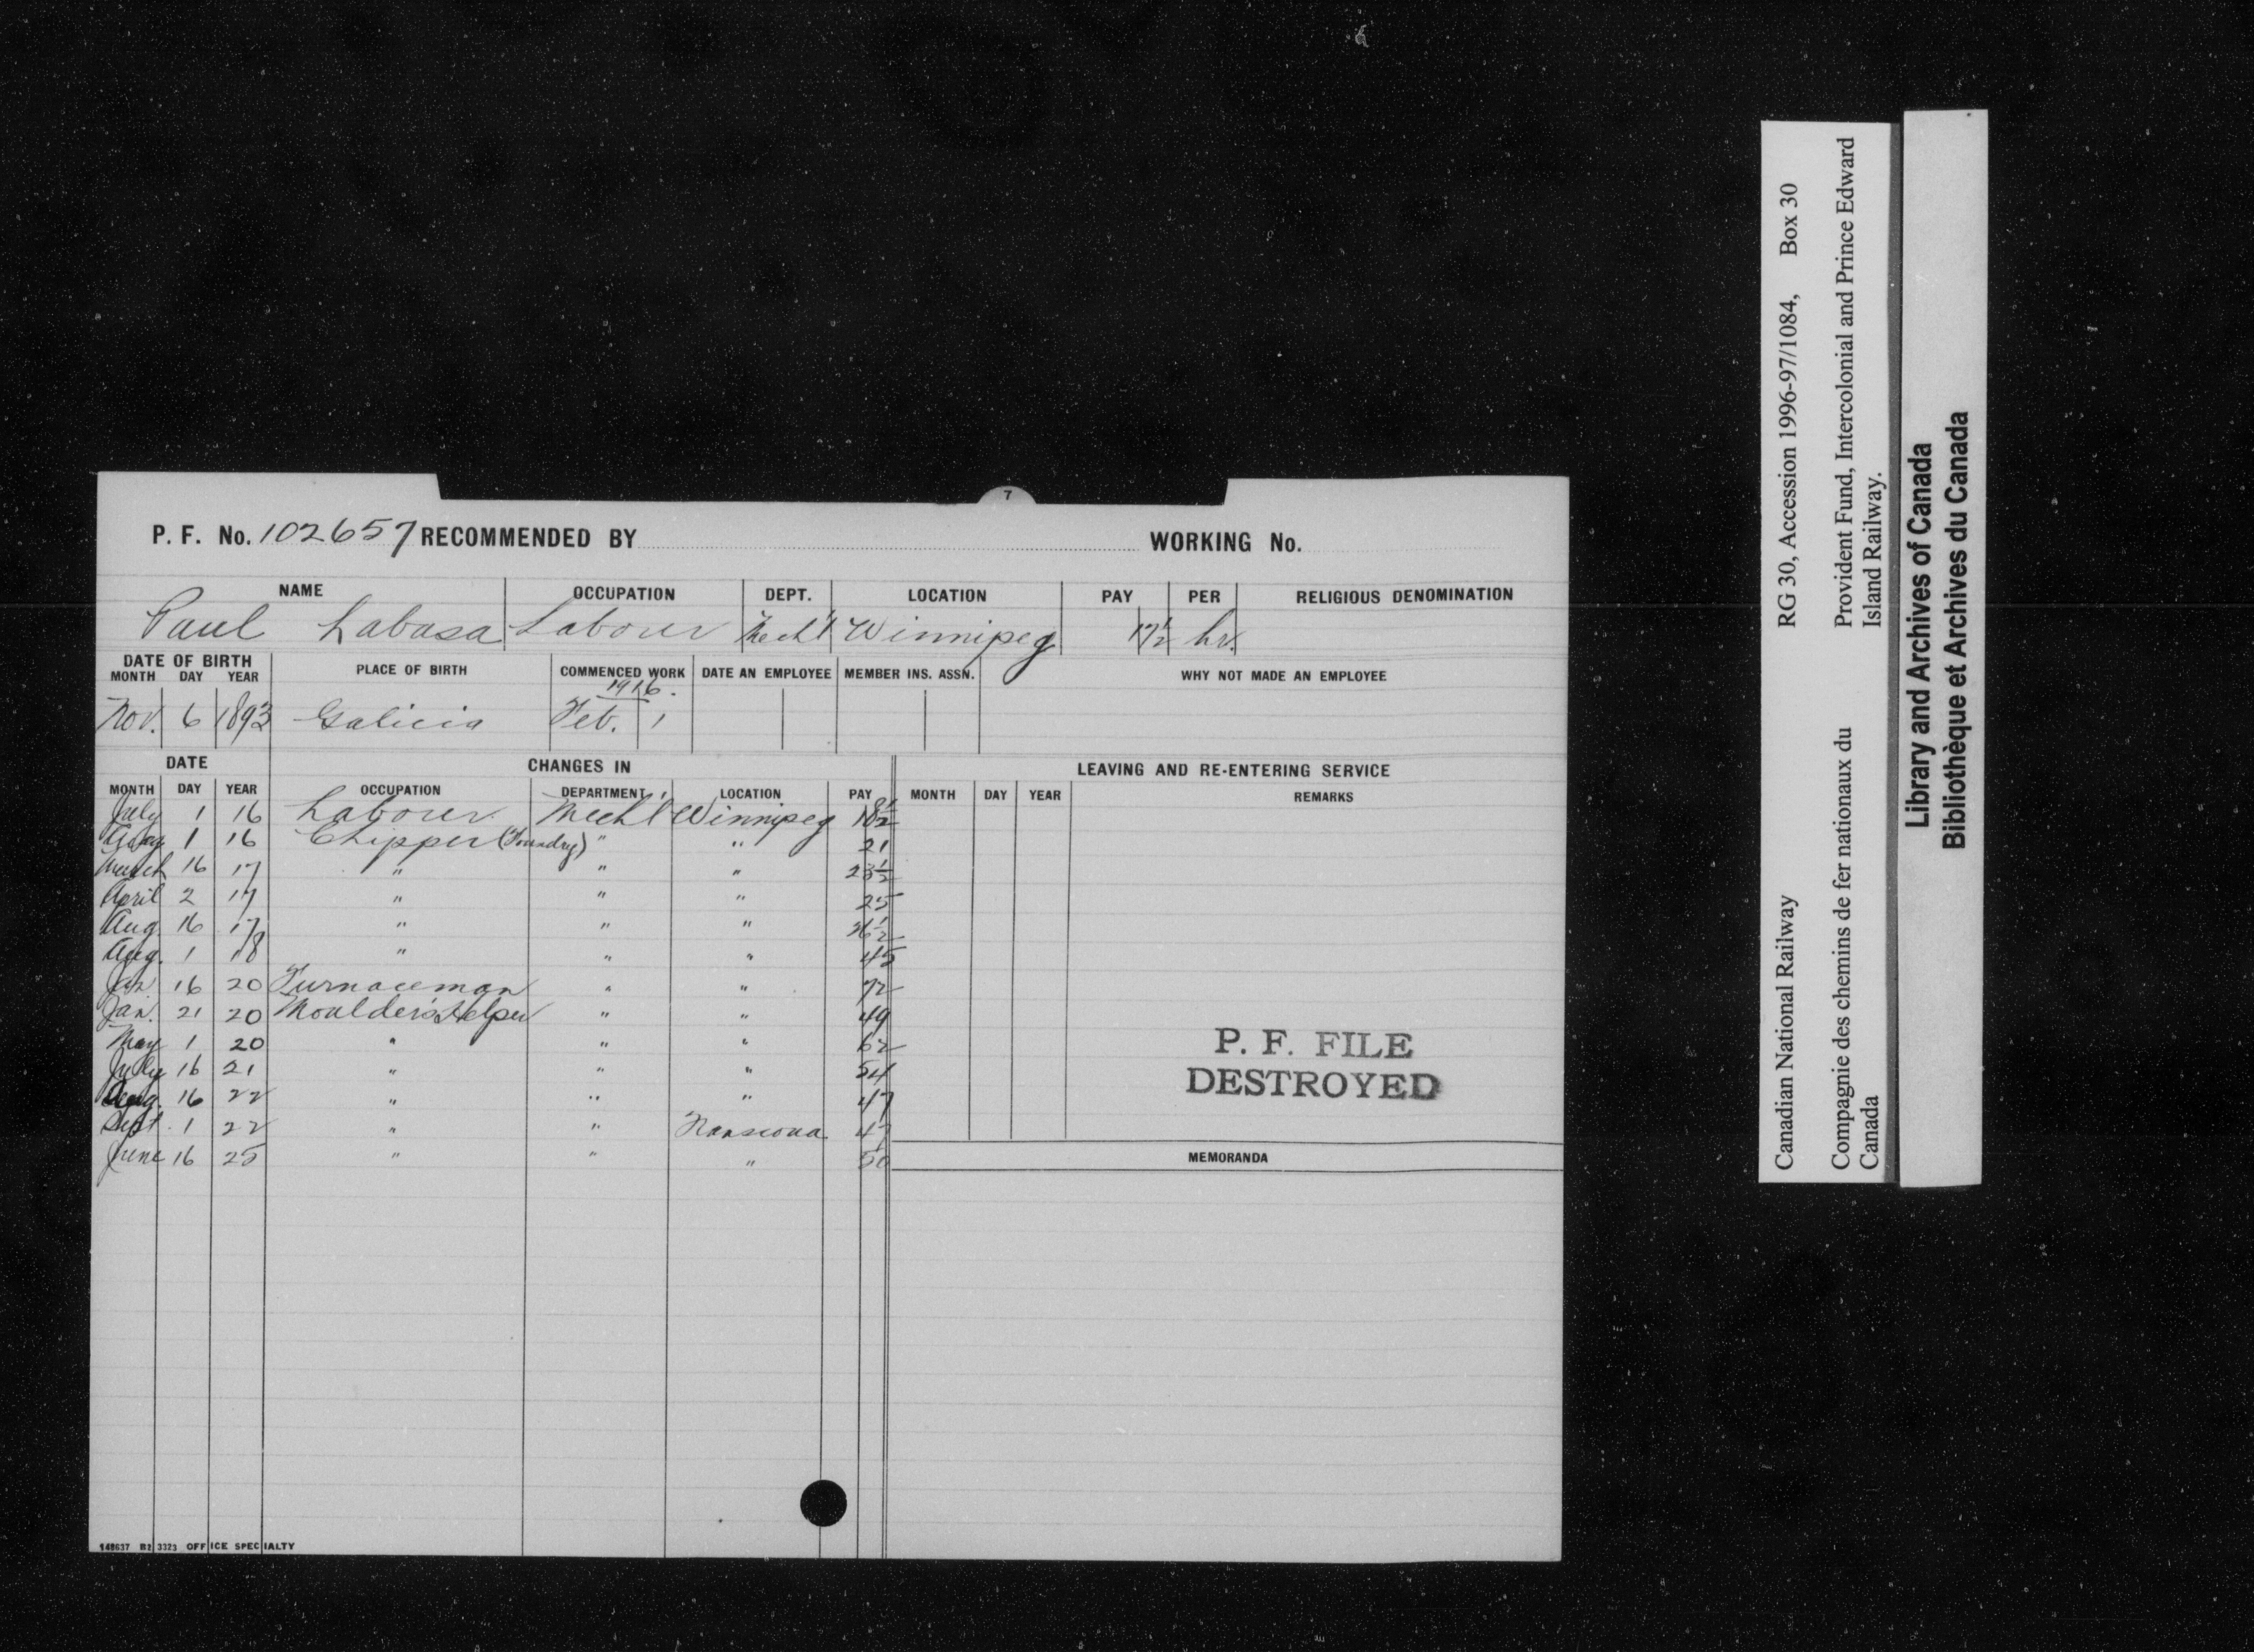 7
P. F. No. 102657 RECOMMENDED BY WORKING No.
NAME OCCUPATION DEPT. LOCATION PAY PER RELIGIOUS DENOMINATION
Paul Labasa Labourer Mech'l Winnipeg 17½ hr.
DATE OF BIRTH PLACE OF BIRTH COMMENCED WORK DATE AN EMPLOYEE MEMBER INS. ASSN. WHY NOT MADE AN EMPLOYEE
MONTH DAY YEAR
1916.
Nov. 6 1893 Galicia Feb. 1
DATE CHANGES IN LEAVING AND RE-ENTERING SERVICE
MONTH DAY YEAR OCCUPATION DEPARTMENT LOCATION PAY MONTH DAY YEAR REMARKS
July 1 16 Labourer Mech'l Winnipeg 18½
1 16 Chipper (Foundry) " " 21
March 16 17 " " " 23½
April 2 17 " " " 25
Aug. 16 17 " " " 26½
Aug. 1 18 " " " 45
Jan 16 20 Furnaceman " " 72
Jan. 21 20 Moulder's Helper " " 49
May 1 20 " " " 62
July 16 21 " " " 54
16 22 " " " 47
Sept. 1 22 " " Transcona 47
June 16 25 " " " 50
P. F. FILE
DESTROYED
MEMORANDA
148637 B2 3323 OFFICE SPECIALTY
Canadian National Railway RG 30, Accession 1996-97/1084, Box 30
Compagnie des chemins de fer nationaux du Canada
Provident Fund, Intercolonial and Prince Edward Island Railway.
Library and Archives of Canada
Bibliothèque et Archives du Canada